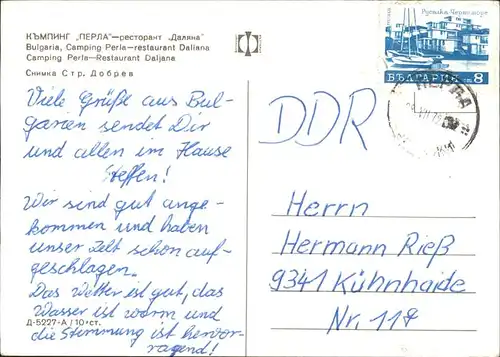 КЪМПИНГ „ПЕРЛА"—ресторант „Даляна"
Bulgaria, Camping Perla—restaurant Daliana
Camping Perla—Restaurant Daljana
Снимка Стр. Добрев
Viele Grüße aus Bul-
garien sendet Dir
und allen im Hause
Steffen!
Wir sind gut ange-
kommen und haben
unser Zelt schon auf-
geschlagen.
Das Wetter ist gut, das
Wasser ist warm und
die Stimmung ist hervor-
ragend!
Д-5227-А / 10 ст.
БЪЛГАРИЯ 8
DDR
Herrn
Hermann Rieß
9341 Kühnhaide
Nr. 118